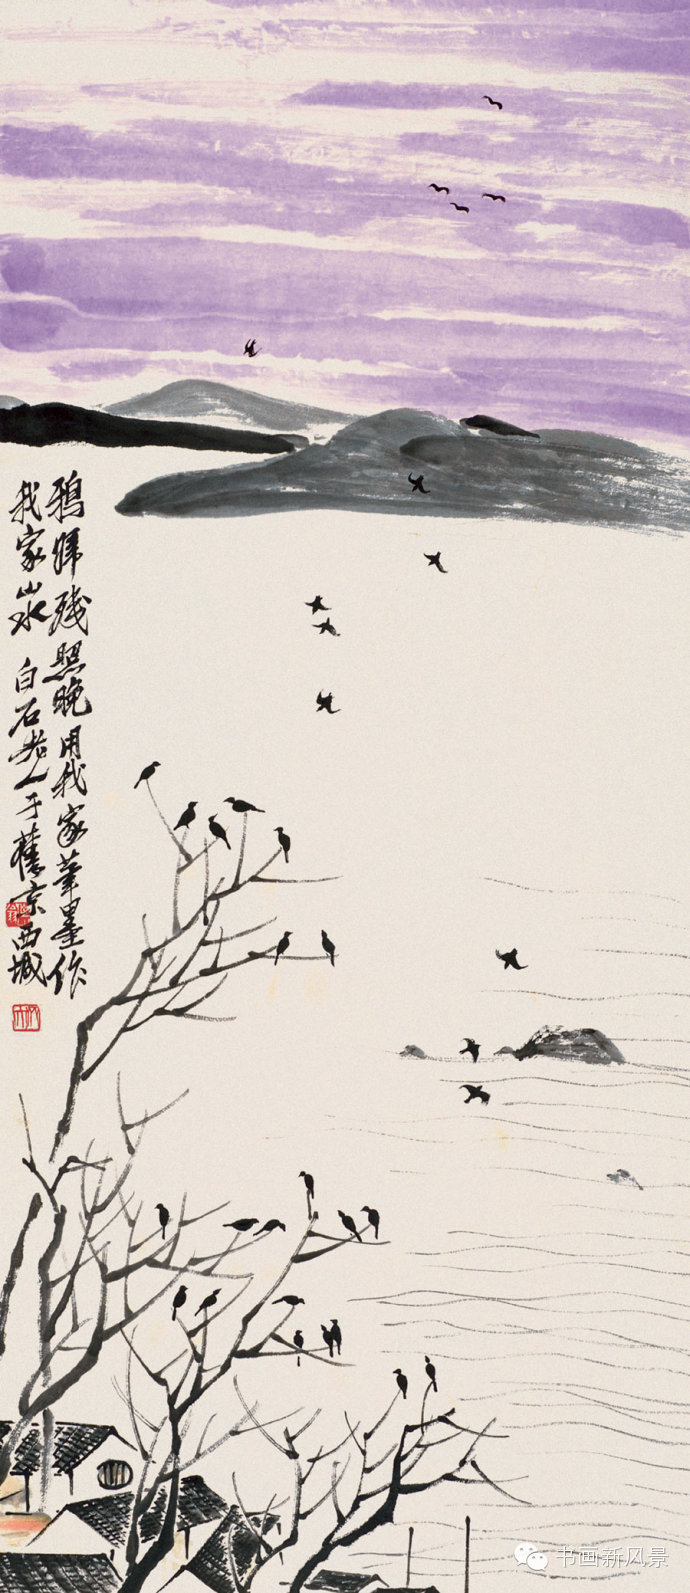 鸦归残照晚用我家笔墨作
我家山水 白石老人于舊京西城
书画新风景